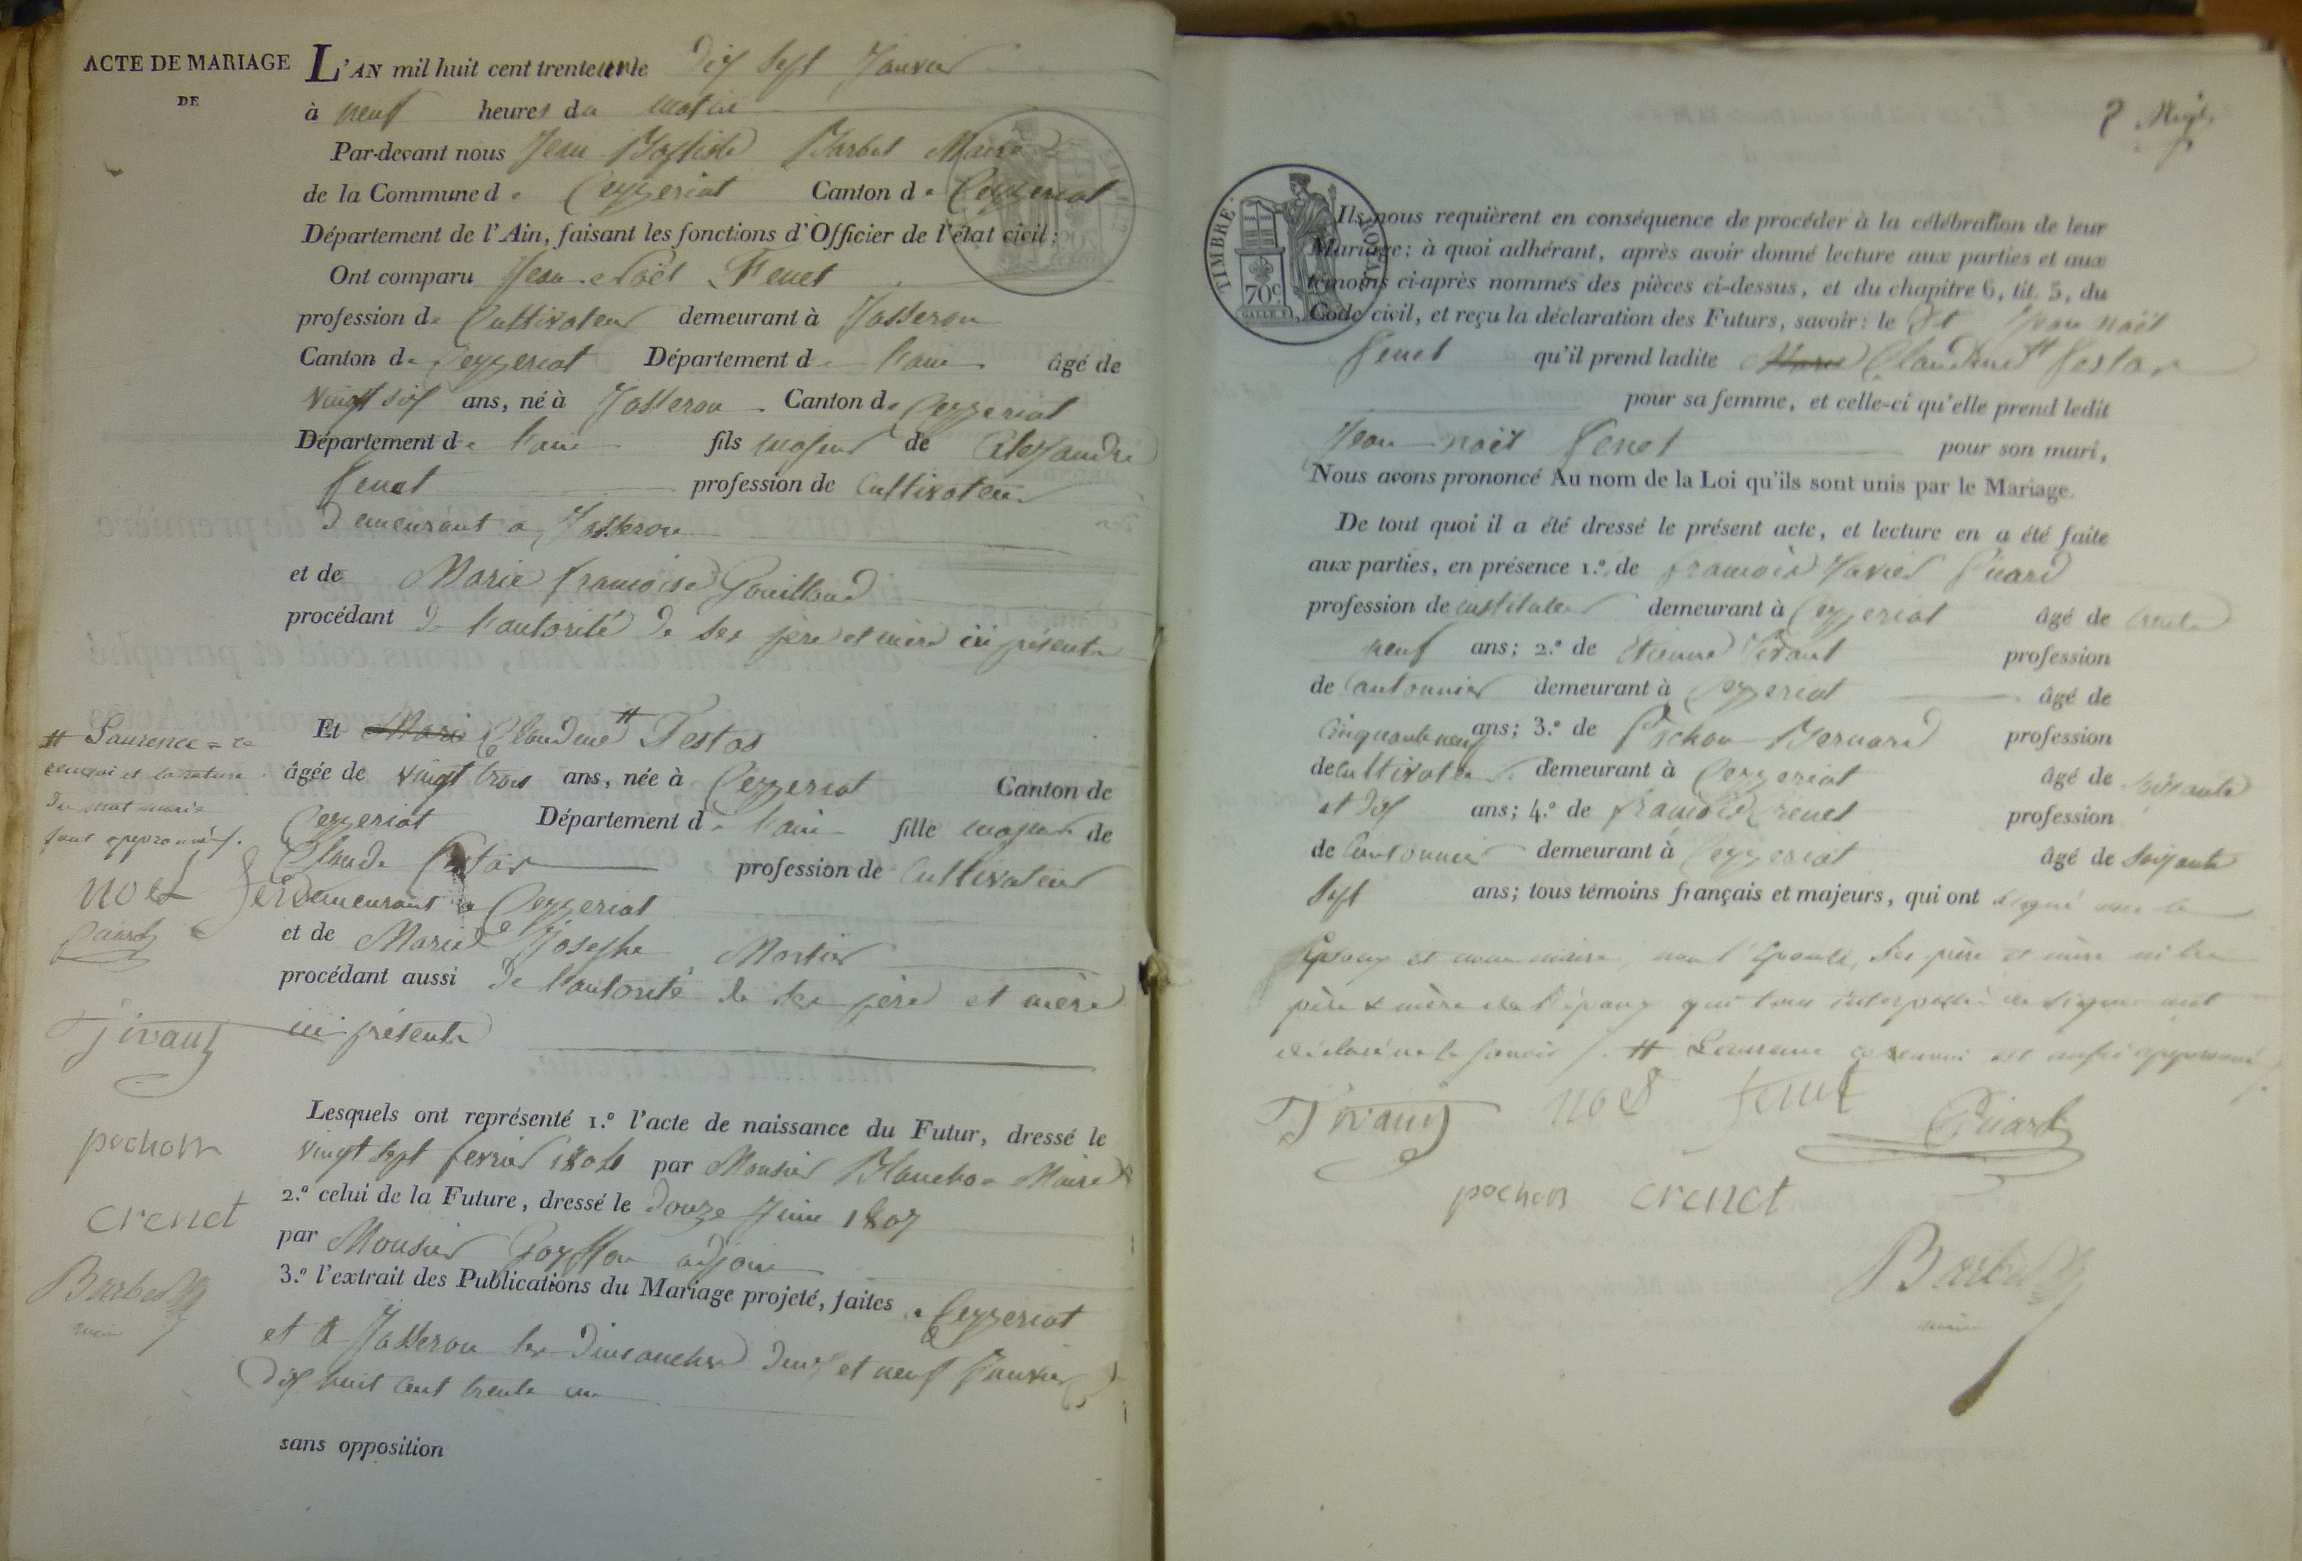 ACTE DE MARIAGE
DE
L'AN mil huit cent trente un le Dix Sept Janvier
à neuf heures du matin
Par-devant nous Jean Baptiste Barbet Maire
de la Commune de Ceyzeriat Canton de Ceyzeriat
Département de l'Ain, faisant les fonctions d'Officier de l'état civil;
Ont comparu Jean Noël Fenet
profession de Cultivateur demeurant à Jasseron
Canton de Ceyzeriat Département de l'ain âgé de
vingt six ans, né à Jasseron Canton de Ceyzeriat
Département de l'ain fils majeur de Alexandre
fenet profession de Cultivateur
Demeurant a Jasseron
et de Marie françoise Gouilloud
procédant de l'autorité de ses père et mère ici présents
Et Marie Claudine # Festas
âgée de vingt trois ans, née à Ceyzeriat Canton de
Ceyzeriat Département de l'ain fille majeure de
Claude festas profession de Cultivateur
demeurant a Ceyzeriat
et de Marie Josephe Mortier
procédant aussi de l'autorité de ses père et mère
ici présents
# Laurence = ce
renvoi et la rature
du mot marie
sont approuvés.
noel fenet
Picard
Tivant
pochon
crenet
Barbet
maire
Lesquels ont représenté 1.º l'acte de naissance du Futur, dressé le
vingt sept fevrier 1804 par Monsieur Blanchon Maire
2.º celui de la Future, dressé le Douze Juin 1807
par Monsieur Goyffon adjoint
3.º l'extrait des Publications du Mariage projeté, faites a Ceyzeriat
et a Jasseron les Dimanches Deux et neuf Janvier
Dix huit cent trente un
sans opposition
TIMBRE ROYAL
70c
Ils nous requièrent en conséquence de procéder à la célébration de leur
Mariage; à quoi adhérant, après avoir donné lecture aux parties et aux
témoins ci-après nommés des pièces ci-dessus, et du chapitre 6, tit. 5, du
Code civil, et reçu la déclaration des Futurs, savoir: le dt Jean noël
fenet qu'il prend ladite Marie Claudine # festas
pour sa femme, et celle-ci qu'elle prend ledit
Jean noël fenet pour son mari,
Nous avons prononcé Au nom de la Loi qu'ils sont unis par le Mariage.
De tout quoi il a été dressé le présent acte, et lecture en a été faite
aux parties, en présence 1.º de françois Xavier Picard
profession de instituteur demeurant à Ceyzeriat âgé de trente
neuf ans; 2.º de Etienne Tivant profession
de Cantonnier demeurant à Ceyzeriat âgé de
Cinquante neuf ans; 3.º de Pochon Bernard profession
de Cultivateur demeurant à Ceyzeriat âgé de soixante
et dix ans; 4.º de françois crenet profession
de Cantonnier demeurant à Ceyzeriat âgé de Soixante
Sept ans; tous témoins français et majeurs, qui ont signé avec le
Epoux et nous maire, non l'Epouse, ses père et mère ni les
père & mère de l'époux qui tous interpellés de signer ont
déclaré ne le savoir /. # Laurence ce renvoi est aussi approuvé
Tivant noel fenet Picard
pochon crenet
Barbet
maire